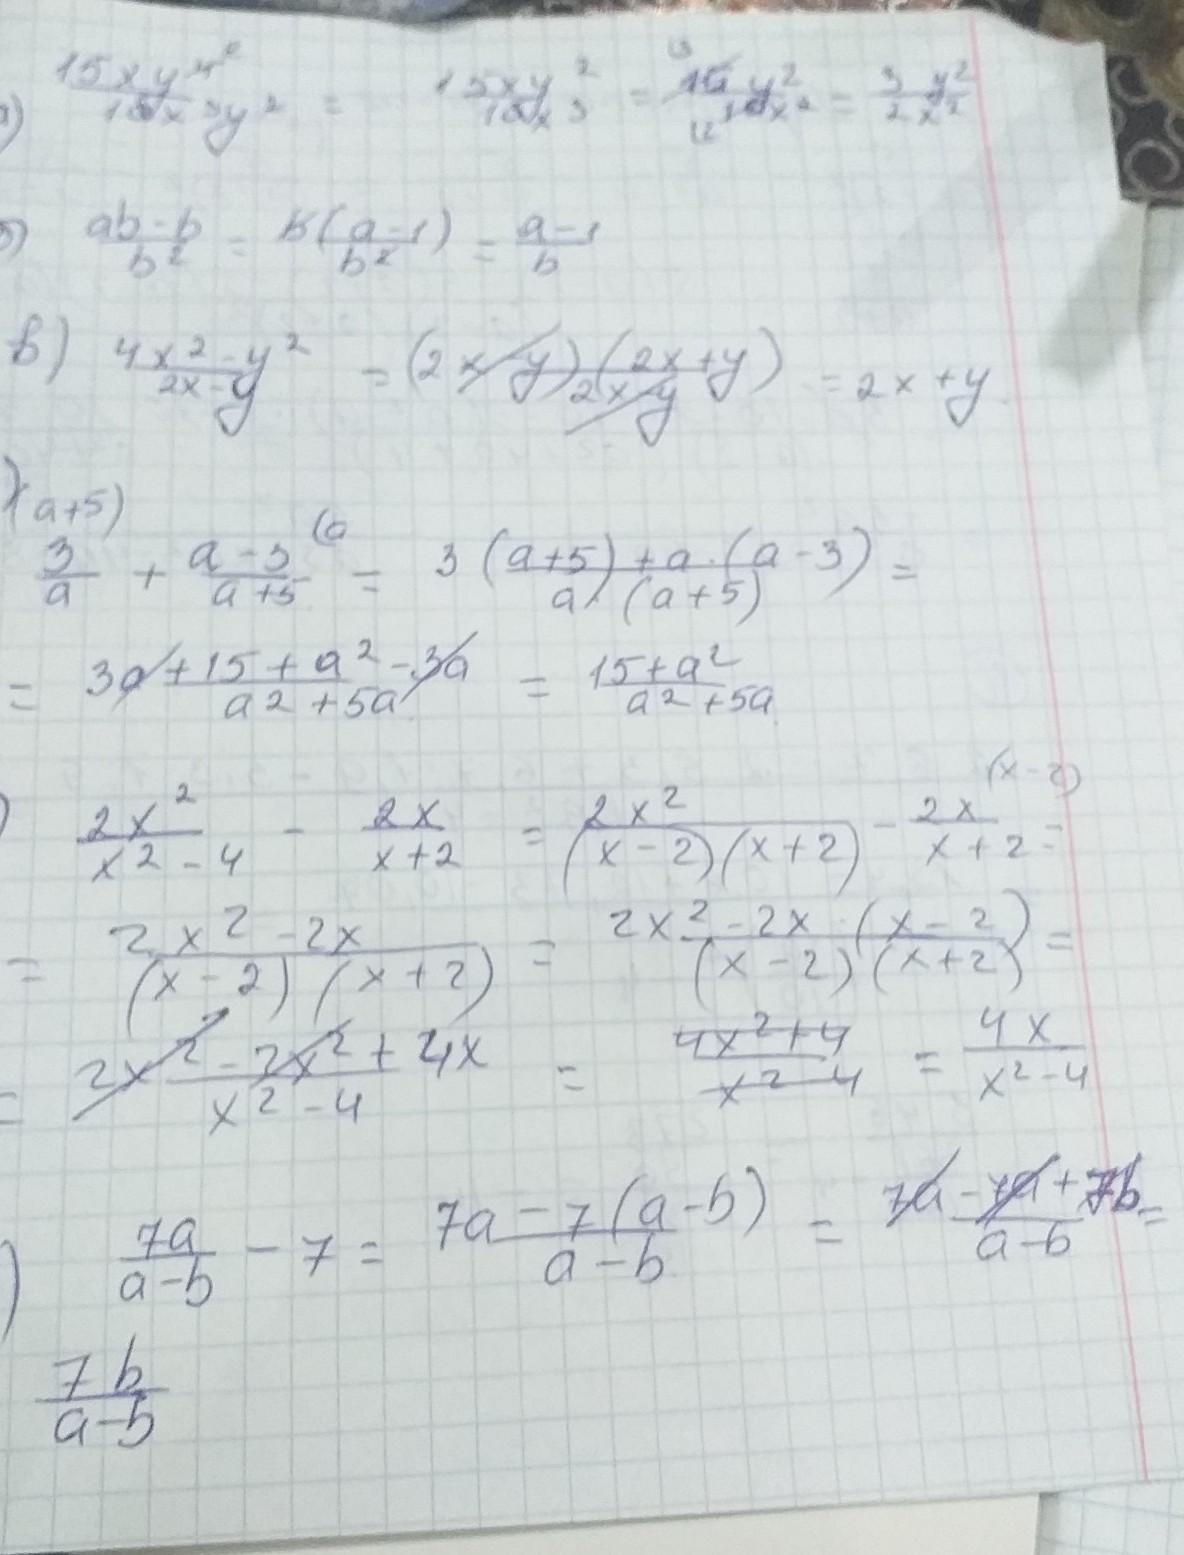 15xy⁴/10x³y² = 15xy²/10x³ = 15y²/10x² = 3y²/2x²
(ab-b)/b² = b(a-1)/b² = (a-1)/b
в) (4x²-y²)/(2x-y) = (2x-y)(2x+y)/(2x-y) = 2x+y
(a+5) (a
3/a + (a-3)/(a+5) = (3(a+5)+a·(a-3))/(a(a+5)) =
= (3a+15+a²-3a)/(a²+5a) = (15+a²)/(a²+5a)
(x-2)
2x²/(x²-4) - 2x/(x+2) = 2x²/((x-2)(x+2)) - 2x/(x+2) =
= (2x²-2x)/((x-2)(x+2)) = (2x²-2x·(x-2))/((x-2)(x+2)) =
= (2x²-2x²+4x)/(x²-4) = (4x²+4)/(x²-4) = 4x/(x²-4)
) 7a/(a-b) - 7 = (7a-7(a-b))/(a-b) = (7a-7a+7b)/(a-b) =
7b/(a-b)